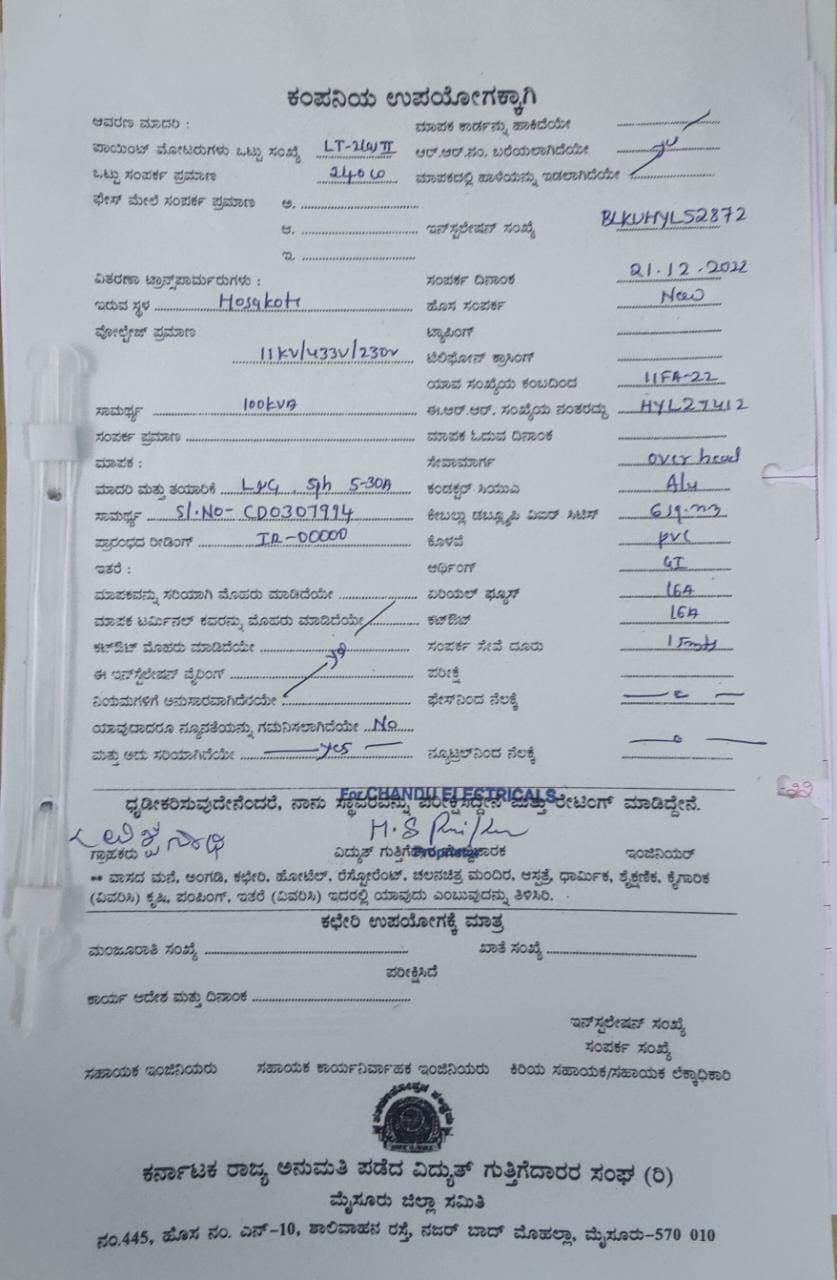 ಕಂಪನಿಯ ಉಪಯೋಗಕ್ಕಾಗಿ
ಆವರಣ ಮಾದರಿ : ಮಾಪಕ ಕಾರ್ಡನ್ನು ಹಾಕಿದೆಯೇ
ಪಾಯಿಂಟ್ ಮೋಟರುಗಳು ಒಟ್ಟು ಸಂಖ್ಯೆ LT-2(a) II ಆರ್.ಆರ್.ನಂ. ಬರೆಯಲಾಗಿದೆಯೇ yes
ಒಟ್ಟು ಸಂಪರ್ಕ ಪ್ರಮಾಣ 240 ಮಾಪಕದಲ್ಲಿ ಹಾಳೆಯನ್ನು ಇಡಲಾಗಿದೆಯೇ
ಫೇಸ್ ಮೇಲೆ ಸಂಪರ್ಕ ಪ್ರಮಾಣ ಅ.
ಆ. ಇನ್‌ಸ್ಟಲೇಷನ್ ಸಂಖ್ಯೆ BLKVHYL52872
ಇ.
ವಿತರಣಾ ಟ್ರಾನ್ಸ್‌ಫಾರ್ಮರುಗಳು : ಸಂಪರ್ಕ ದಿನಾಂಕ 21.12.2022
ಇರುವ ಸ್ಥಳ Hosakote ಹೊಸ ಸಂಪರ್ಕ New
ವೋಲ್ಟೇಜ್ ಪ್ರಮಾಣ ಟ್ಯಾಪಿಂಗ್
11KV/433V/230V ಟೆಲಿಫೋನ್ ಕ್ರಾಸಿಂಗ್
ಯಾವ ಸಂಖ್ಯೆಯ ಕಂಬದಿಂದ 11FA-22
ಸಾಮರ್ಥ್ಯ 100KVA ಈ.ಆರ್.ಆರ್. ಸಂಖ್ಯೆಯ ನಂತರದ್ದು HYL27412
ಸಂಪರ್ಕ ಪ್ರಮಾಣ ಮಾಪಕ ಓದುವ ದಿನಾಂಕ
ಮಾಪಕ : ಸೇವಾಮಾರ್ಗ over head
ಮಾದರಿ ಮತ್ತು ತಯಾರಿಕೆ L&G, Sph 5-30A ಕಂಡಕ್ಟರ್ ಸಿಯುಎ Alu
ಸಾಮರ್ಥ್ಯ Sl.No- CD0307994 ಕೇಬಲ್ಲು ಡಬ್ಲ್ಯೂಪಿ ವಿಐಆರ್ ಸಿಟಿಸ್ 6sq.mm
ಪ್ರಾರಂಭದ ರೀಡಿಂಗ್ IR-00000 ಕೊಳವೆ PVC
ಇತರೆ : ಅರ್ಥಿಂಗ್ GI
ಮಾಪಕವನ್ನು ಸರಿಯಾಗಿ ಮೊಹರು ಮಾಡಿದೆಯೇ ಏರಿಯಲ್ ಫ್ಯೂಸ್ 16A
ಮಾಪಕ ಟರ್ಮಿನಲ್ ಕವರನ್ನು ಮೊಹರು ಮಾಡಿದೆಯೇ ಕಟ್‌ಔಟ್ 16A
ಕಟ್‌ಔಟ್ ಮೊಹರು ಮಾಡಿದೆಯೇ yes ಸಂಪರ್ಕ ಸೇವೆ ದೂರು 15mts
ಈ ಇನ್‌ಸ್ಟೆಲೇಷನ್ ವೈರಿಂಗ್ ಪರೀಕ್ಷೆ
ನಿಯಮಗಳಿಗೆ ಅನುಸಾರವಾಗಿದೆರಯೇ ಫೇಸ್‌ನಿಂದ ನೆಲಕ್ಕೆ
ಯಾವುದಾದರೂ ನ್ಯೂನತೆಯನ್ನು ಗಮನಿಸಲಾಗಿದೆಯೇ No
ಮತ್ತು ಅದು ಸರಿಯಾಗಿದೆಯೇ yes ನ್ಯೂಟ್ರಲ್‌ನಿಂದ ನೆಲಕ್ಕೆ
For CHANDU ELECTRICALS
ಧೃಡೀಕರಿಸುವುದೇನೆಂದರೆ, ನಾನು ಸ್ಥಾವರವನ್ನು ಪರೀಕ್ಷಿಸಿದ್ದೇನೆ ಮತ್ತು ರೇಟಿಂಗ್ ಮಾಡಿದ್ದೇನೆ.
ಗ್ರಾಹಕರು ವಿದ್ಯುತ್ ಗುತ್ತಿಗೆದಾರ ಇಂಜಿನಿಯರ್
** ವಾಸದ ಮನೆ, ಅಂಗಡಿ, ಕಛೇರಿ, ಹೋಟೆಲ್, ರೆಸ್ಟೋರೆಂಟ್, ಚಲನಚಿತ್ರ ಮಂದಿರ, ಆಸ್ಪತ್ರೆ, ಧಾರ್ಮಿಕ, ಶೈಕ್ಷಣಿಕ, ಕೈಗಾರಿಕ
(ವಿವರಿಸಿ) ಕೃಷಿ, ಪಂಪಿಂಗ್, ಇತರೆ (ವಿವರಿಸಿ) ಇದರಲ್ಲಿ ಯಾವುದು ಎಂಬುವುದನ್ನು ತಿಳಿಸಿರಿ.
ಕಛೇರಿ ಉಪಯೋಗಕ್ಕೆ ಮಾತ್ರ
ಮಂಜೂರಾತಿ ಸಂಖ್ಯೆ ಖಾತೆ ಸಂಖ್ಯೆ
ಪರೀಕ್ಷಿಸಿದೆ
ಕಾರ್ಯ ಆದೇಶ ಮತ್ತು ದಿನಾಂಕ
ಇನ್‌ಸ್ಟಲೇಷನ್ ಸಂಖ್ಯೆ
ಸಂಪರ್ಕ ಸಂಖ್ಯೆ
ಸಹಾಯಕ ಇಂಜಿನಿಯರು ಸಹಾಯಕ ಕಾರ್ಯನಿರ್ವಾಹಕ ಇಂಜಿನಿಯರು ಕಿರಿಯ ಸಹಾಯಕ/ಸಹಾಯಕ ಲೆಕ್ಕಾಧಿಕಾರಿ
ಕರ್ನಾಟಕ ರಾಜ್ಯ ಅನುಮತಿ ಪಡೆದ ವಿದ್ಯುತ್ ಗುತ್ತಿಗೆದಾರರ ಸಂಘ (ರಿ)
ಮೈಸೂರು ಜಿಲ್ಲಾ ಸಮಿತಿ
ನಂ.445, ಹೊಸ ನಂ. ಎನ್-10, ಶಾಲಿವಾಹನ ರಸ್ತೆ, ನಜರ್ ಬಾದ್ ಮೊಹಲ್ಲಾ, ಮೈಸೂರು-570 010